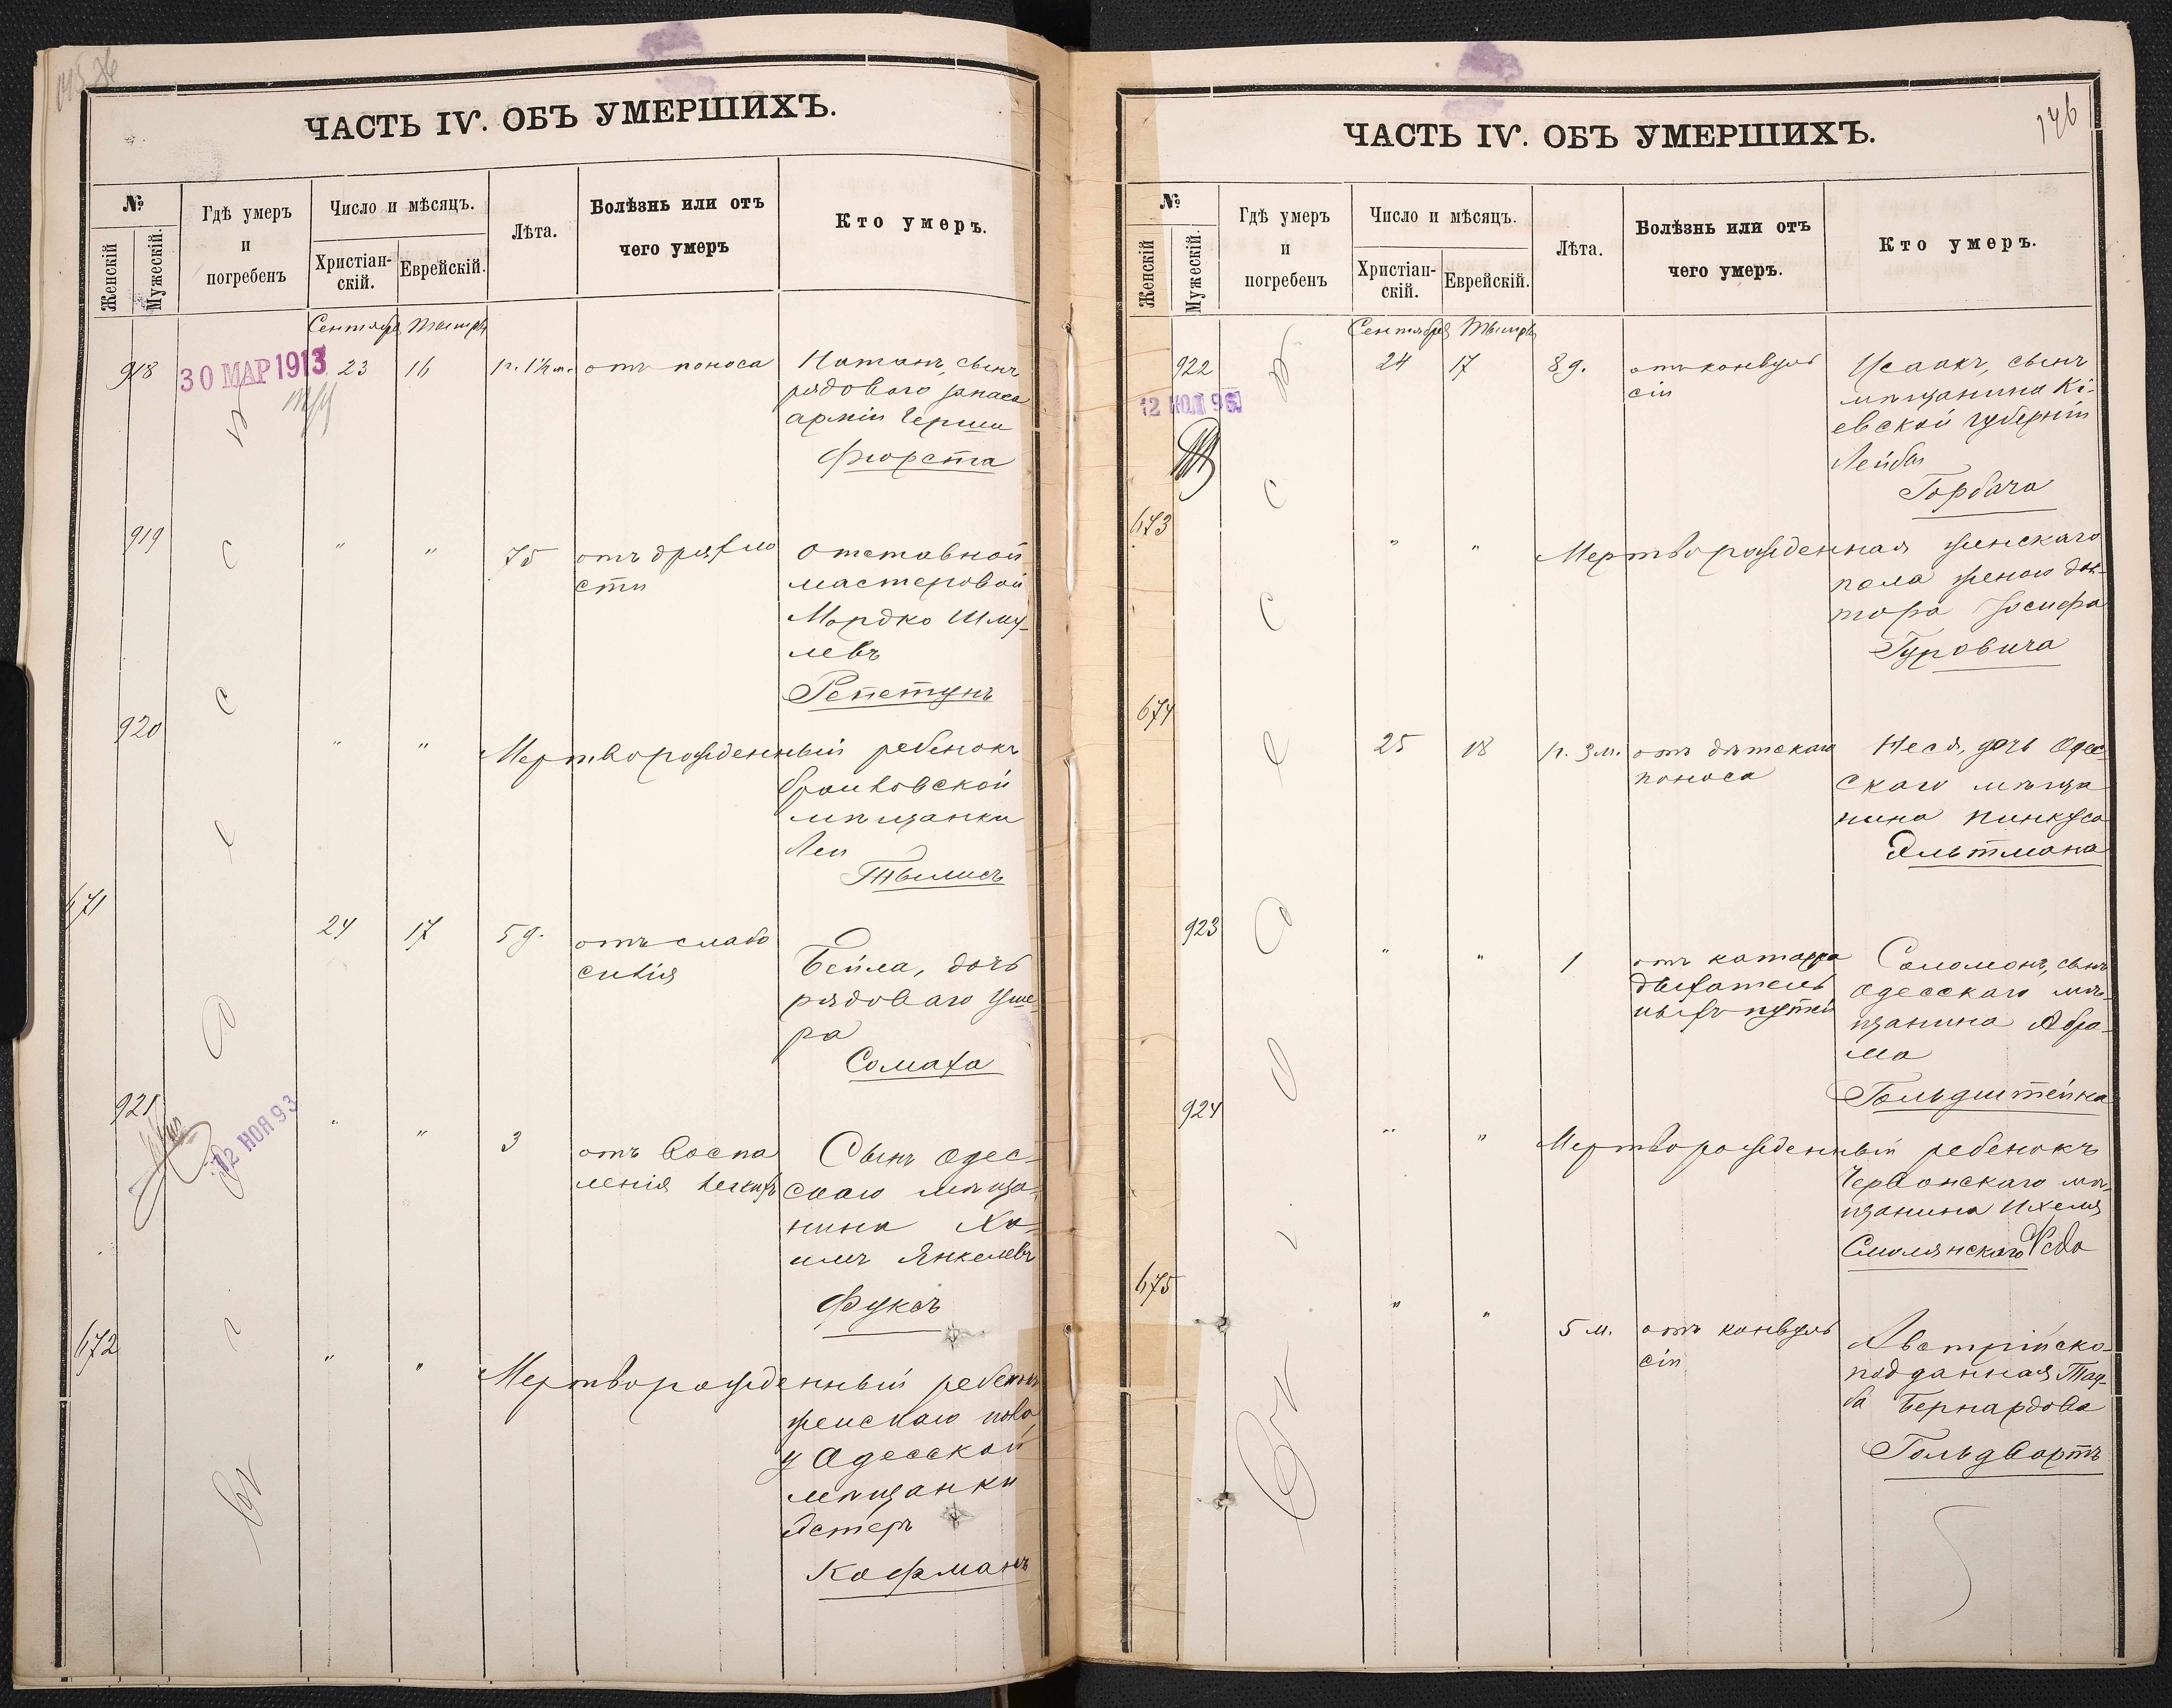 ЧАСТЬ IV. ОБЪ УМЕРШИХЪ.
№
Женскій
Мужескій.
Гдѣ умеръ
и
погребенъ
Число и мѣсяцъ.
Христіан-
скій.
Еврейскій.
Лѣта.
Болѣзнь или отъ
чего умеръ
Кто умеръ.
Сентября Тишрі
918
30 МАР 1913
23
16
1 г. 1½ м.
отъ поноса
Натанъ, сынъ
рядоваго запаса
арміи Герша
Фюрста
919
"
"
75
отъ дряхло
сти
отставной
мастеровой
Мордко Шму-
левъ
Репетунъ
920
"
"
Мертворожденный ребенокъ
мѣщанки
Леи
671
24
17
5 д.
отъ слабо
силія
Бейла, дочь
рядоваго Уше-
ра
Сомаха
921
12 НОЯ 93
"
"
3
отъ воспа
ленія легкихъ
Сынъ Одес-
скаго мѣща-
нина Ха-
имъ Янкелевъ
Фуксъ
672
"
"
Мертворожденный ребенокъ
женскаго пола
у Одесской
мѣщанки
Эстеръ
Кофманъ
Въ г. Одессѣ
ЧАСТЬ IV. ОБЪ УМЕРШИХЪ.
146
№
Женскій
Мужескій.
Гдѣ умеръ
и
погребенъ
Число и мѣсяцъ.
Христіан-
скій.
Еврейскій.
Лѣта.
Болѣзнь или отъ
чего умеръ.
Кто умеръ.
Сентября Тишрі
922
12 НОЯ
24
17
8 д.
отъ конвуль
сіи
Исаакъ, сынъ
мѣщанина Кі-
евской губерніи
Лейбы
Горбача
673
"
"
Мертворожденная женскаго
пола женою док-
тора Іосифа
Гуровича
674
25
18
1 г. 3 м.
отъ дѣтскаго
поноса
Неся, дочь Одес-
скаго мѣща
нина Пинкуса
Альтмана
923
"
"
1
отъ катарра
дыхатель
ныхъ путей
Соломонъ, сынъ
Одесскаго мѣ-
щанина Абра-
ма
Гольдштейна
924
"
"
Мертворожденный ребенокъ
мѣ-
щанина Ихеля
Смолянскаго
675
"
"
5 м.
отъ конвуль
сіи
Австрійско-
подданная Тау-
ба Бернардова
Гольдвортъ
Въ г. Одессѣ